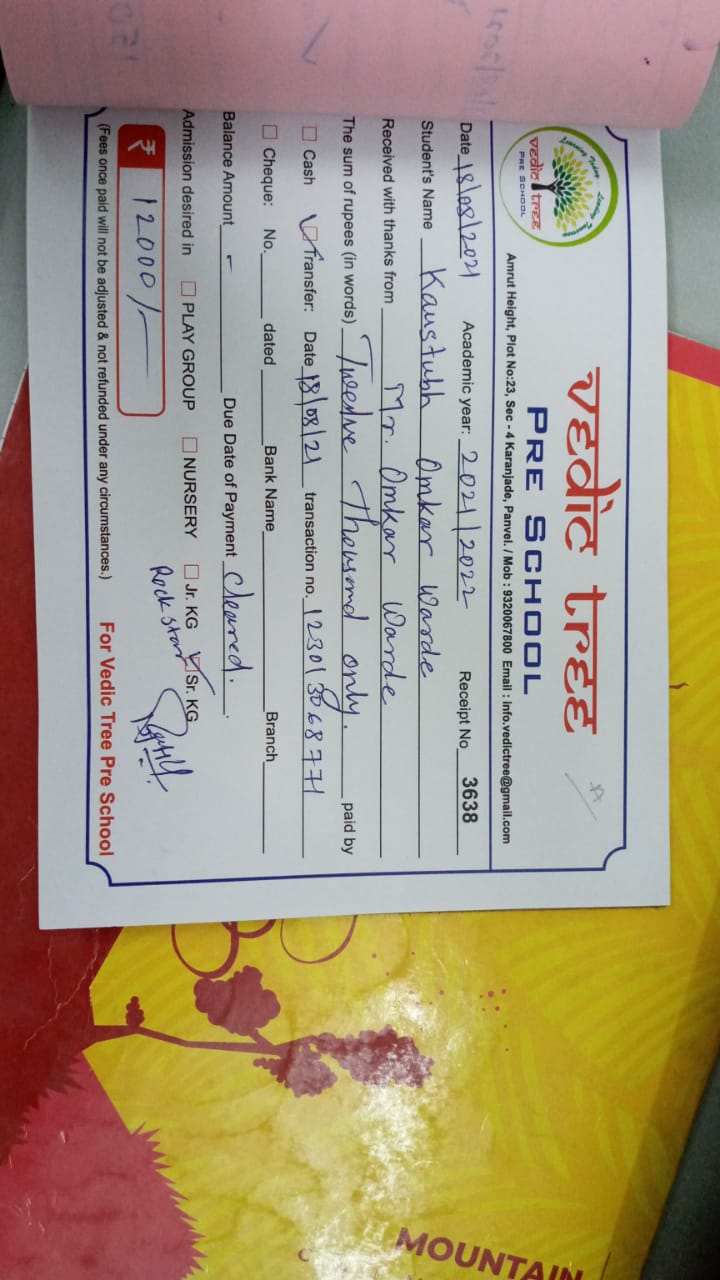 vedic tree
PRE SCHOOL
vedic tree
PRE SCHOOL
Amrut Height, Plot No:23, Sec - 4 Karanjade, Panvel. / Mob : 9320067800 Email : info.vedictree@gmail.com
Date 18/08/2021 Academic year: 2021/2022 Receipt No 3638
Student's Name Kaustubh Omkar Warde
Received with thanks from Mr. Omkar Warde
The sum of rupees (in words) Twelve Thousand only. paid by
Cash Transfer: Date 18/08/21 transaction no. 123013068771
Cheque: No. dated Bank Name Branch
Balance Amount - Due Date of Payment Cleared.
Admission desired in PLAY GROUP NURSERY Jr. KG Sr. KG
Rockstar
₹ 12000/-
(Fees once paid will not be adjusted & not refunded under any circumstances.) For Vedic Tree Pre School
MOUNTAIN